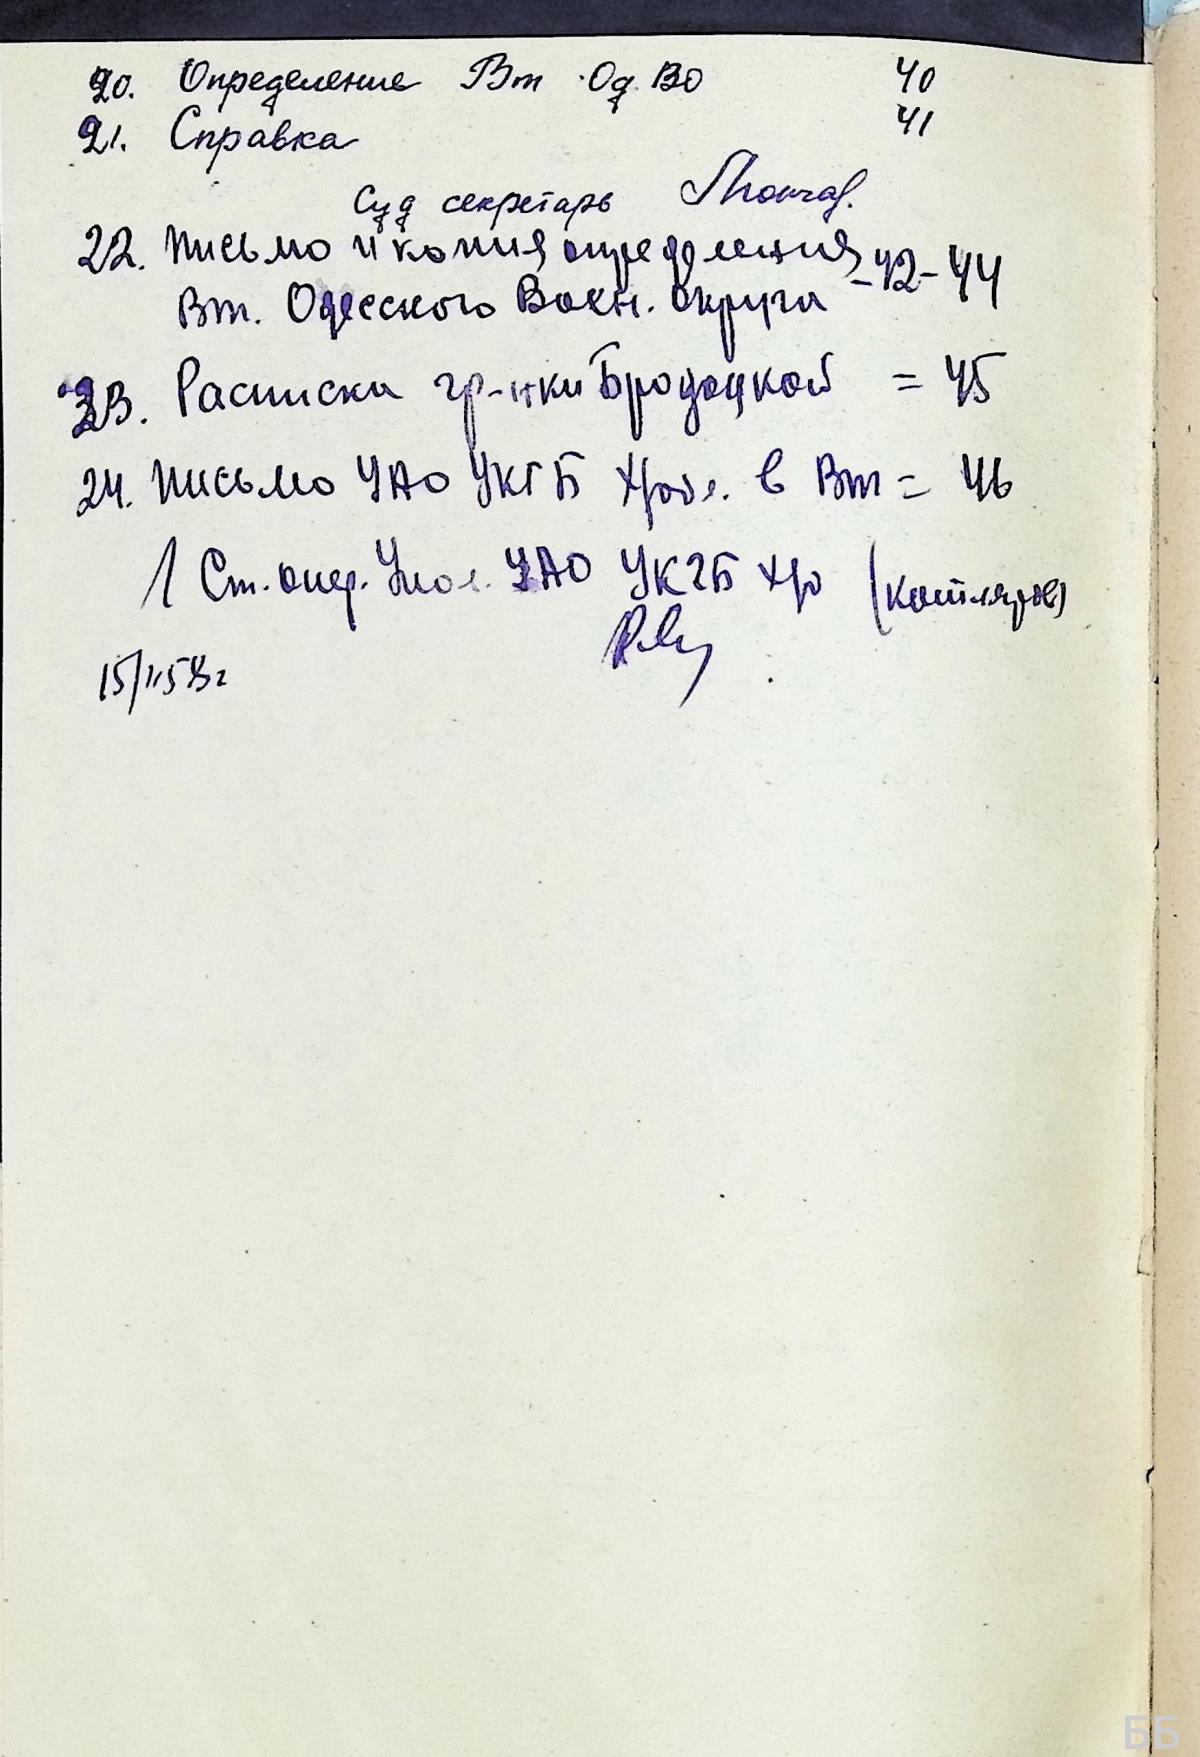 20. Определение Вт Од ВО 40
21. Справка 41
Суд секретарь
22. Письмо и копия определения
Вт. Одесского Воен. округа -42-44
23. Расписки гр-нки Бродоцкой = 45
24. Письмо УАО УКГБ Хроб. в Вт = 46
Ст. опер. Упол. УАО УКГБ Хо (Котляров)
ББ